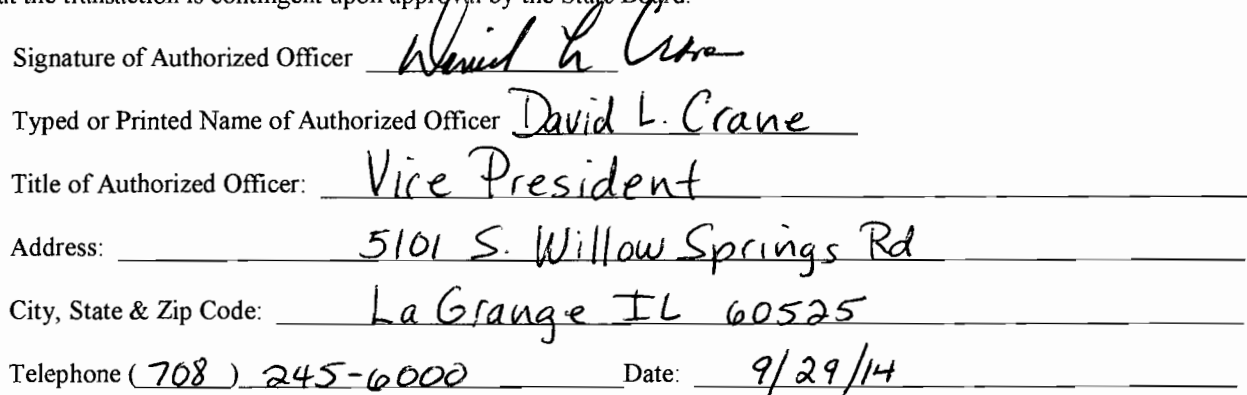 at the transaction is contingent upon approval by the State Board.
Signature of Authorized Officer
Typed or Printed Name of Authorized Officer David L. Crane
Title of Authorized Officer: Vice President
Address: 5101 S. Willow Springs Rd
City, State & Zip Code: La Grange IL 60525
Telephone ( 708 ) 245-6000 Date: 9/29/14